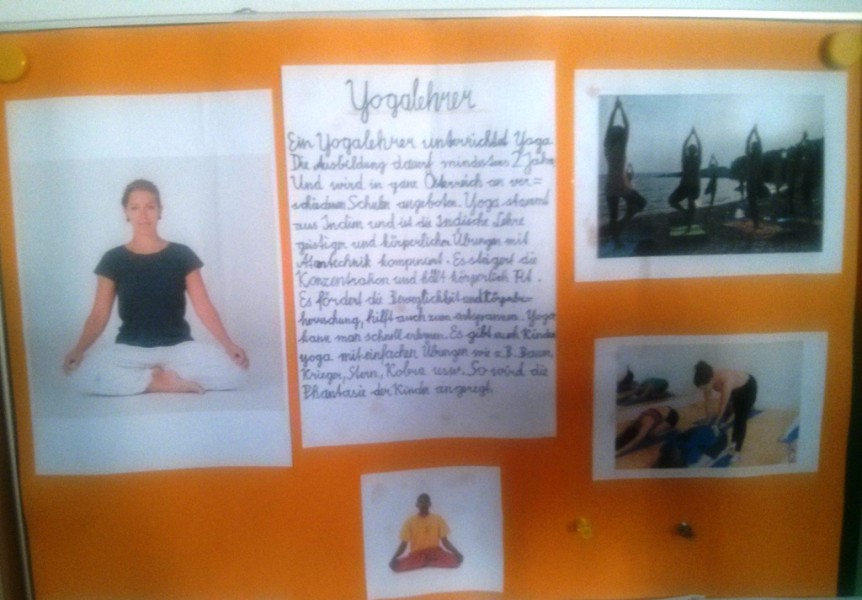 Yogalehrer
Ein Yogalehrer unterrichtet Yoga.
Die Ausbildung dauert mindestens 2 Jahre
Und wird in ganz Österreich an ver=
schiedenen Schulen angeboten. Yoga stammt
aus Indien und ist die Indische Lehre
geistiger und körperlichen Übungen mit
Atemtechnik kombiniert. Es steigert die
Konzentration und hält körperlich Fit.
Es fördert die Beweglichkeit und Körperbe-
herrschung, hilft auch zum entspannen. Yoga
kann man schnell erlernen. Es gibt auch Kinder
yoga mit einfachen Übungen wie z.B. Baum,
Krieger, Stern, Kobra usw. So wird die
Phantasie der Kinder angeregt.